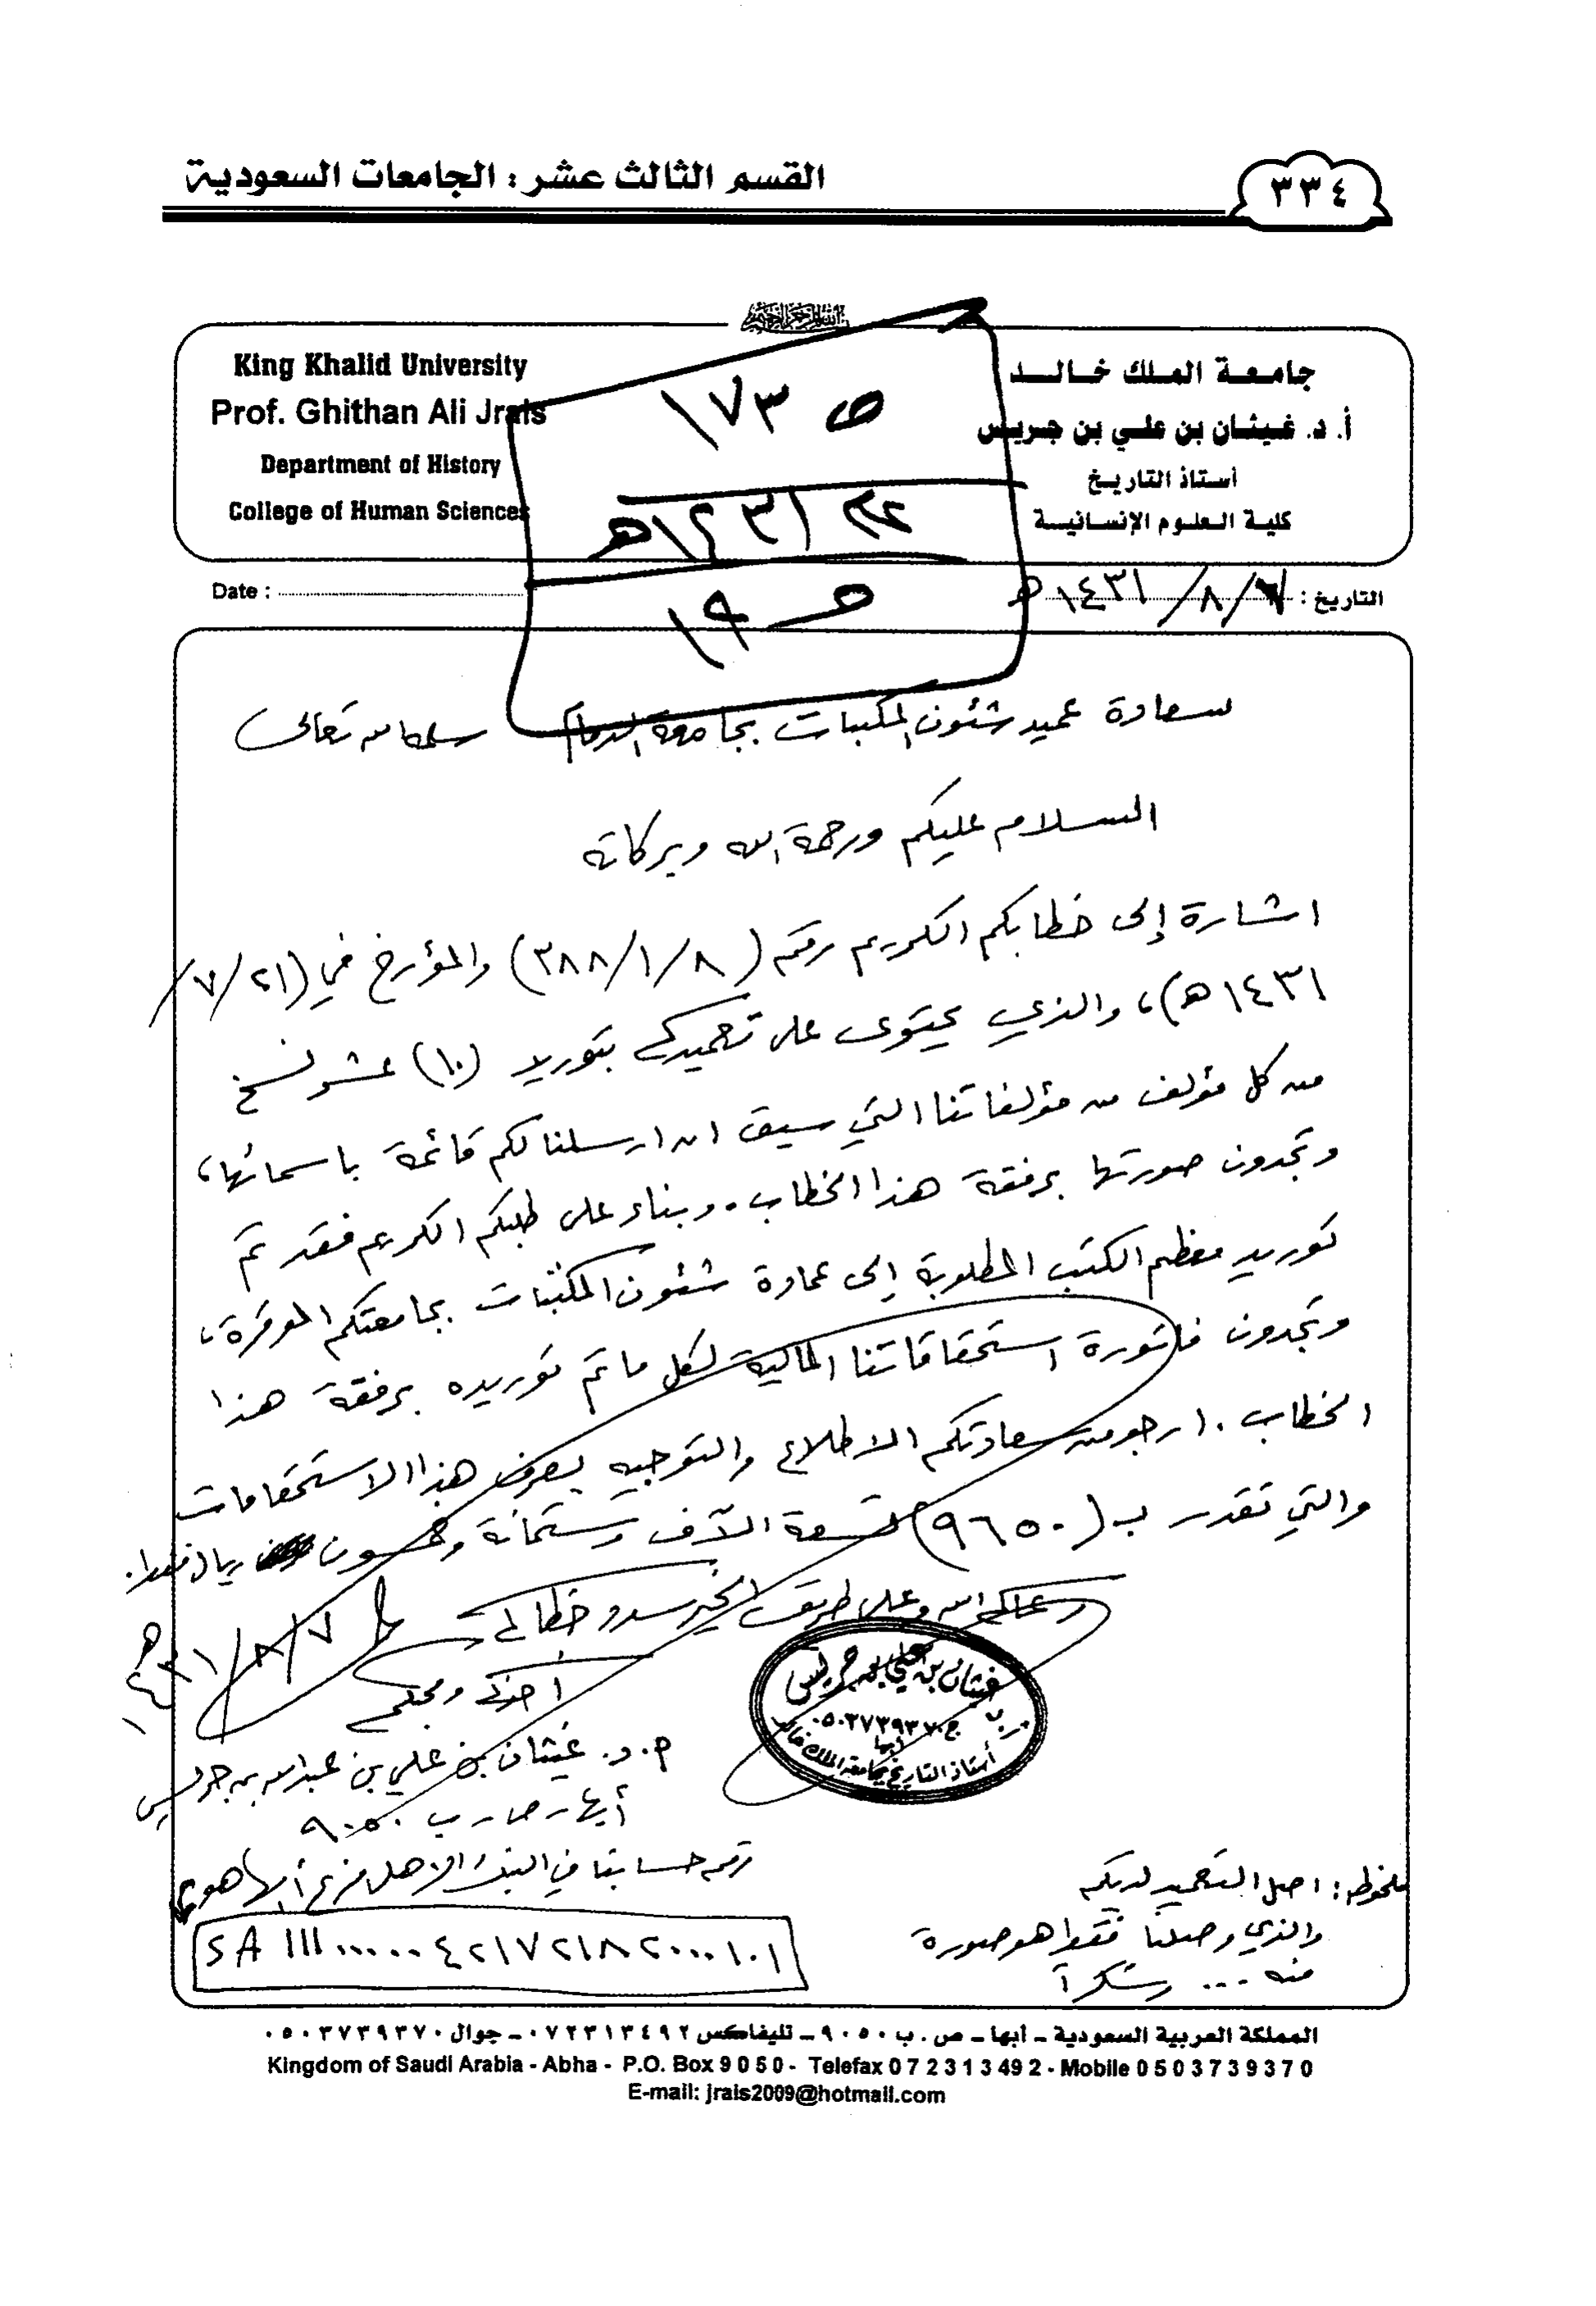 القسم الثالث عشر: الجامعات السعودية
٣٣٤
King Khalid University
Prof. Ghithan Ali Jrais
Department of History
College of Human Sciences
جامعة الملك خالد
أ. د. غيثان بن علي بن جريس
أستاذ التاريخ
كلية العلوم الإنسانية
ص ١٧٣
١٩
Date :
التاريخ : ٧/٨/١٤٣١هـ
سعادة عميد شئون المكتبات بجامعة الدمام سلمه الله تعالى
السلام عليكم ورحمة الله وبركاته
اشارة إلى خطابكم الكريم رقم (٣٨٨/١/٨) والمؤرخ في (٢١/٧/
١٤٣١هـ)، والذي يحتوى على تعميدكم بتوريد (١٠) عشر نسخ
من كل مؤلف من مؤلفاتنا التي سبق ان ارسلنا لكم قائمة باسمائها،
وتجدون صورتها برفقة هذا الخطاب. وبناء على طلبكم الكريم فقد تم
توريد معظم الكتب المطلوبة إلى عمادة شئون المكتبات بجامعتكم الموقرة،
وتجدون فاتورة استحقاقاتنا المالية لكل ما تم توريده برفقة هذا
الخطاب. ارجو من سعادتكم الاطلاع والتوجيه بصرف هذا الاستحقاقات
والتي تقدر ب (٩٦٥٠) تسعة الآف وستمائة وخمسون ريال فقط.
رعاكم الله وعلى طريق الخير سدد خطاكم
أخوكم ومحبكم
٧/٨/١٤٣١هـ
أ. د. غيثان بن علي بن عبدالله بن جريس
أبها - ص. ب ٩٠٥٠
غيثان بن علي بن جريس
ج ٠٥٠٣٧٣٩٣٧٠
أبها
أستاذ التاريخ بجامعة الملك خالد
رقم حسابنا في البنك الأهلي فرع أبها هو
SA ١١١٠٠٠٠٠٠٤٢١٧٢١٨٢٠٠٠١٠١
ملحوظة: اصل التعميد لديكم
والذي وصلنا فقط هو صورة
منه ... وشكراً
المملكة العربية السعودية - أبها - ص. ب ٩٠٥٠ - تليفاكس ٠٧٢٣١٣٤٩٢ - جوال ٠٥٠٣٧٣٩٣٧٠
Kingdom of Saudi Arabia - Abha - P.O. Box 9 0 5 0 - Telefax 0 7 2 3 1 3 4 9 2 - Mobile 0 5 0 3 7 3 9 3 7 0
E-mail: jrais2009@hotmail.com